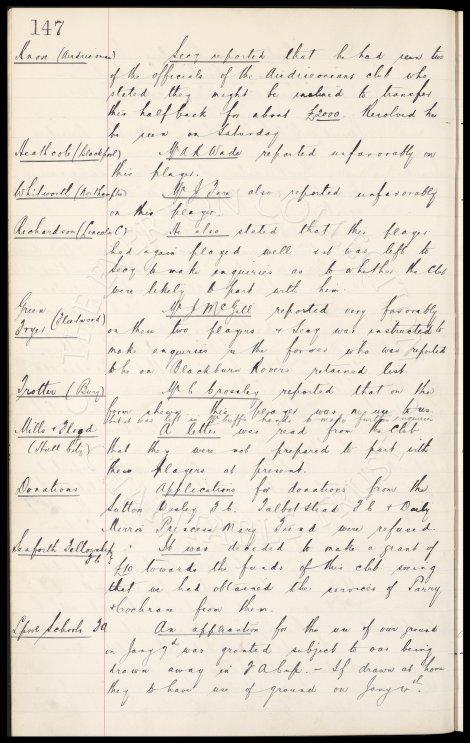 147
Knox (Airdrieonians) Secy reported that he had seen two
of the officials of the Airdrieonians club who
stated they might be inclined to transfer
this half back for about £2000. Resolved he
be seen on Saturday
Heathcote (Blackpool) Mr A R Wade reported unfavorably on
this player.
Whitworth (Northampton) Mr J also reported unfavorably
on this player.
Richardson (Lincoln C) He also stated that this player
had again played well & it was left to
Secy to make inquiries as to whether the Club
were likely to part with him.
Green
Fryer (Fleetwood) Mr J McGill reported very favorably
on these two players & Secy was instructed to
make enquiries re the former who was reported
to be on Blackburn Rovers retained list
Trotter (Bury) Mr C Crossley reported that on the
form shown this player was no use to us.
and it was left in Mr Cuff's hands to make further enquiries
Mills & Flood
(Hull City) A letter was read from the Club
that they were not prepared to part with
these players at present.
Donations Applications for donations from the
Sutton F.C. Talbot Stead F.C & Daily
Mirror Princess Mary Fund were refused
Seaforth Fellowship
F.C. It was decided to make a grant of
£10 towards the funds of this club seeing
that we had obtained the services of Parry
& Cochrane from them.
L'pool Schools FA An application for the use of our ground
on Jany 7th was granted subject to our being
drawn away in F A Cup. - If drawn at home
they to have use of ground on Jany th.